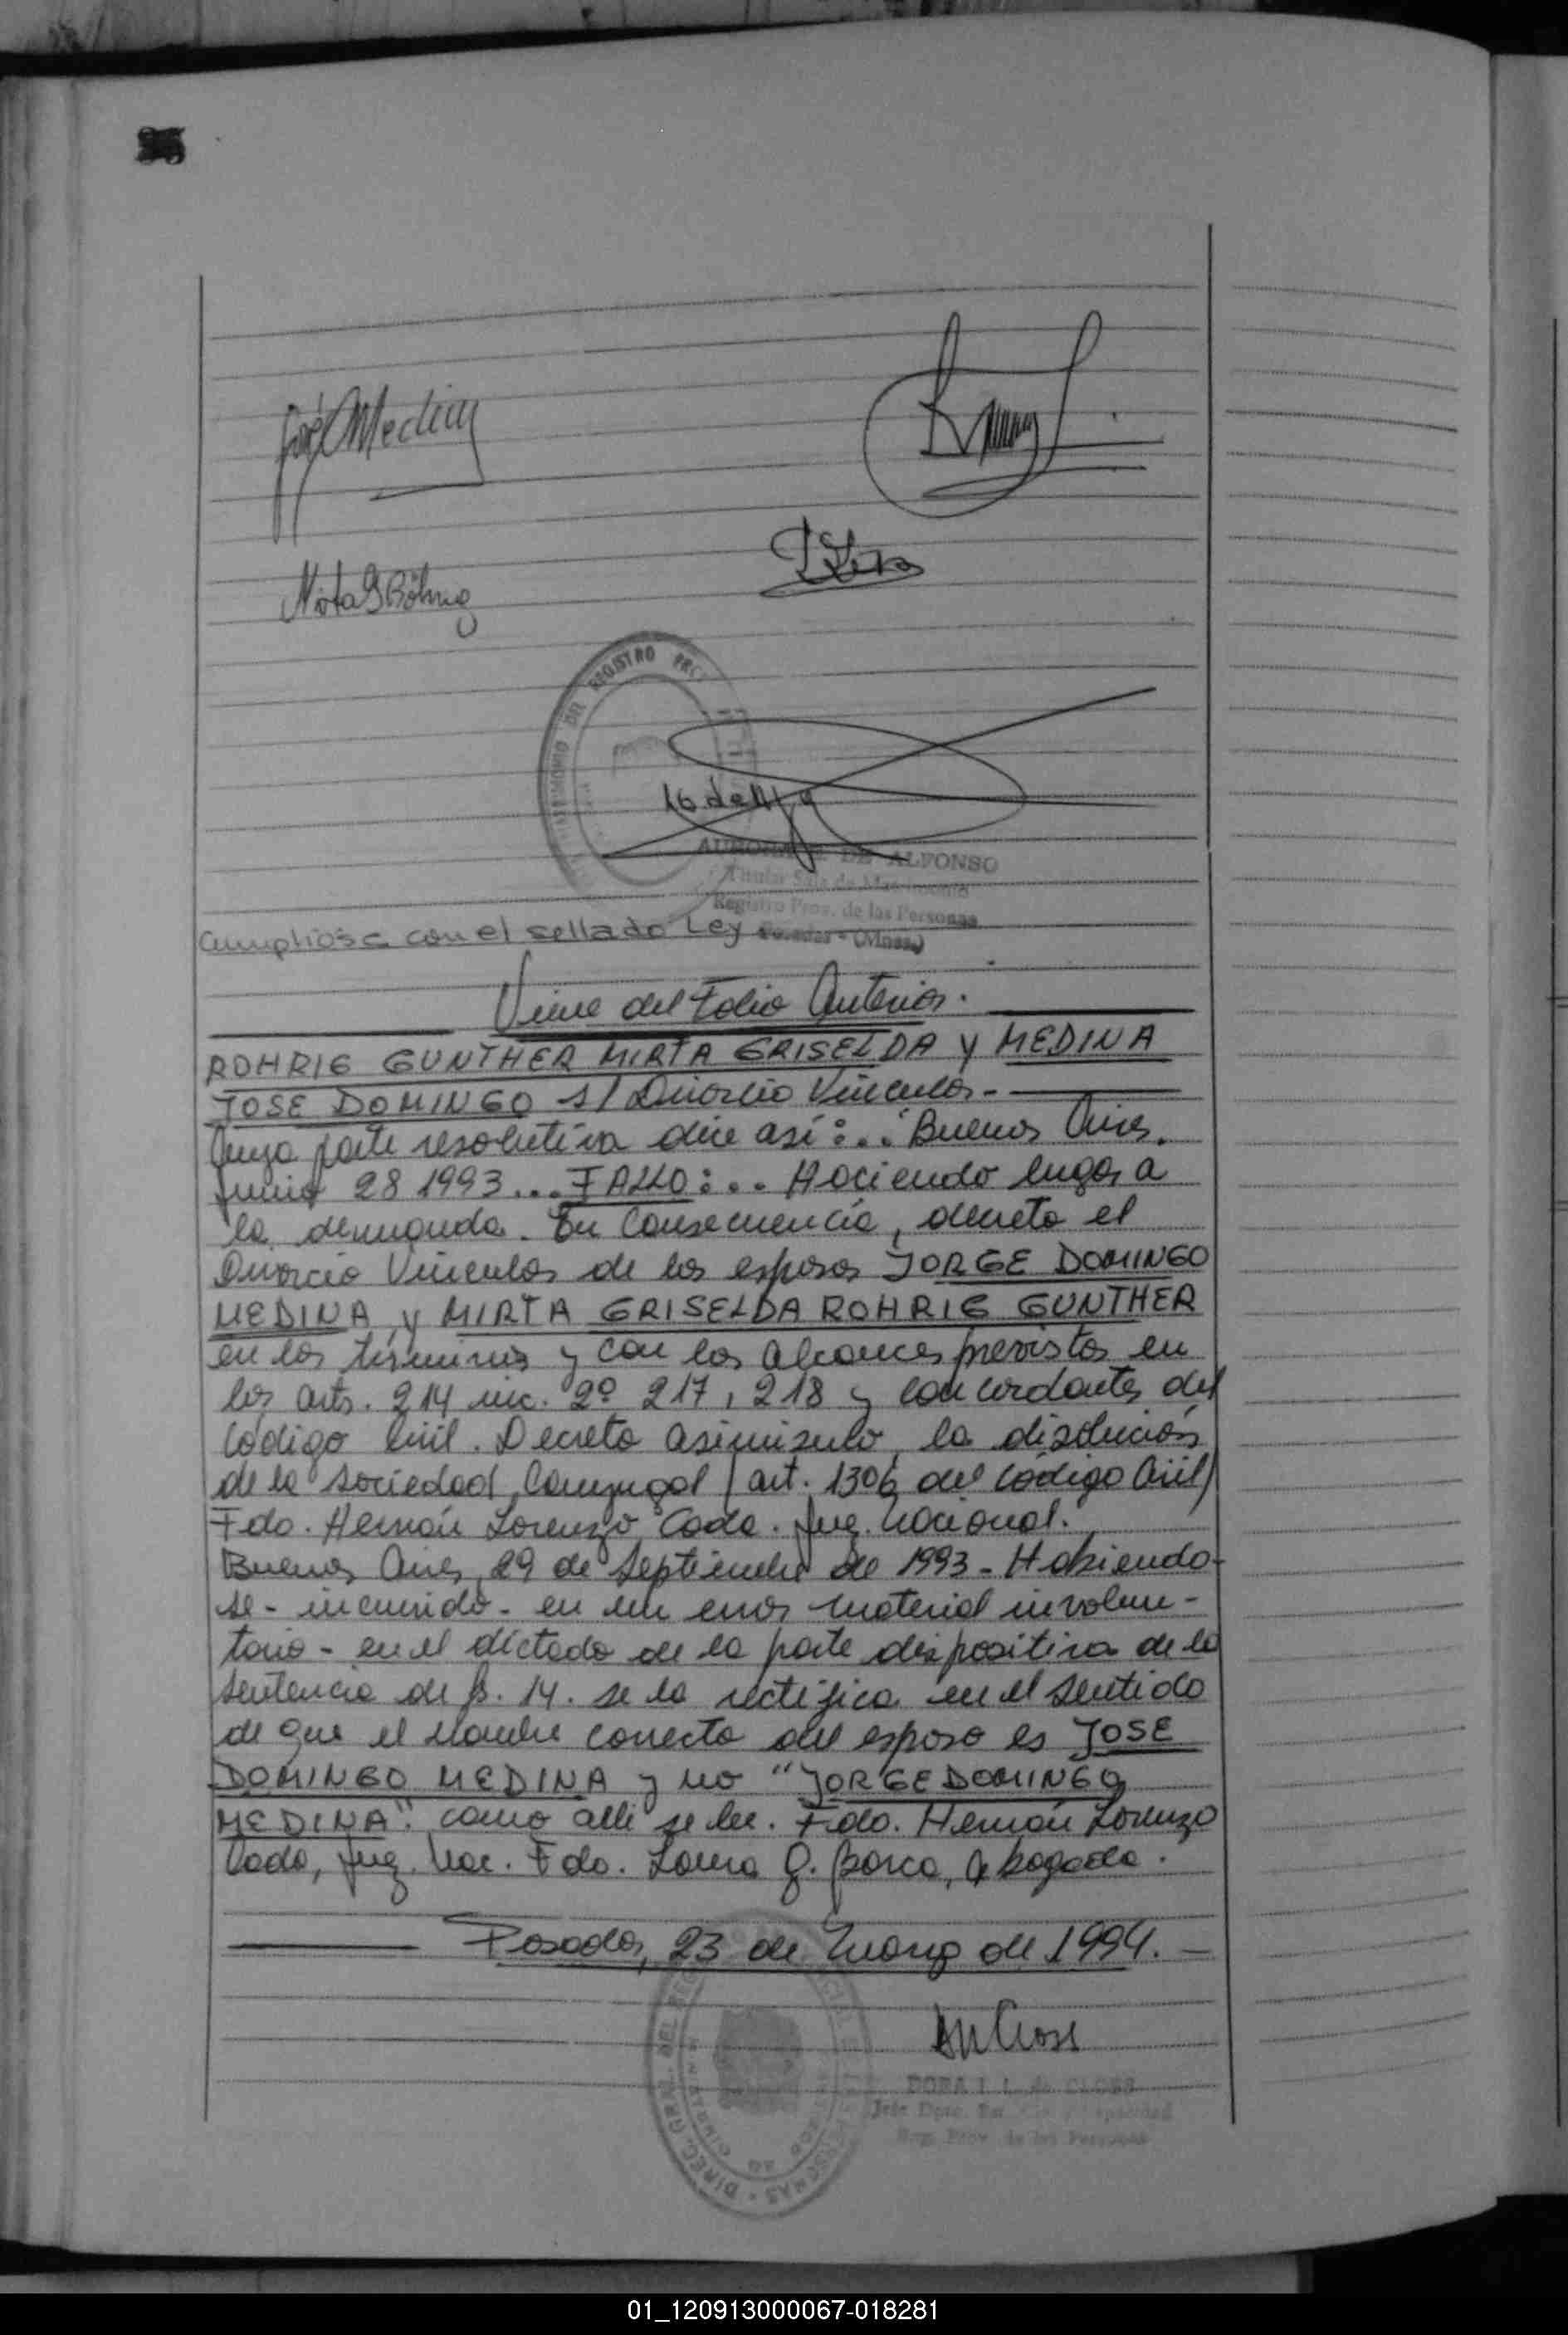 José Medina
16 de
REGISTRO
DE ALFONSO
Titular Sala de Matrimonio
Registro Prov. de las Personas
Posadas - (Mnes.)
Cumpliose con el sellado Ley
Viene del Folio Anterior.
ROHRIG GUNTHER MIRTA GRISELDA y MEDINA
JOSE DOMINGO s/ Divorcio Vincular.-
Cuya parte resolutiva dice así:... Buenos Aires,
Junio 28 1993... FALLO:... Haciendo lugar a
la demanda. En Consecuencia, decreto el
Divorcio Vincular de los esposos JORGE DOMINGO
MEDINA y MIRTA GRISELDA ROHRIG GUNTHER
en los términos y con los alcances previstos en
los arts. 214 inc. 2º 217, 218 y concordantes del
Código Civil. Decreto asimismo, la disolución
de la sociedad Conyugal (art. 1306 del Código Civil)
Fdo. Hernán Lorenzo Coda. Juez Nacional.
Buenos Aires, 29 de Septiembre de 1993 - Habiendo-
se - incurrido - en un error material involun-
tario - en el dictado de la parte dispositiva de la
sentencia de fs. 14. se la rectifica en el sentido
de que el nombre correcto del esposo es JOSE
DOMINGO MEDINA y no "JORGE DOMINGO
MEDINA". como allí se lee. Fdo. Hernán Lorenzo
Coda, Juez. Nac. Fdo. Laura G. , Abogada.
Posadas, 23 de Marzo de 1994.-
DORA de CLOSS
Reg. Prov. de las Personas
01_120913000067-018281